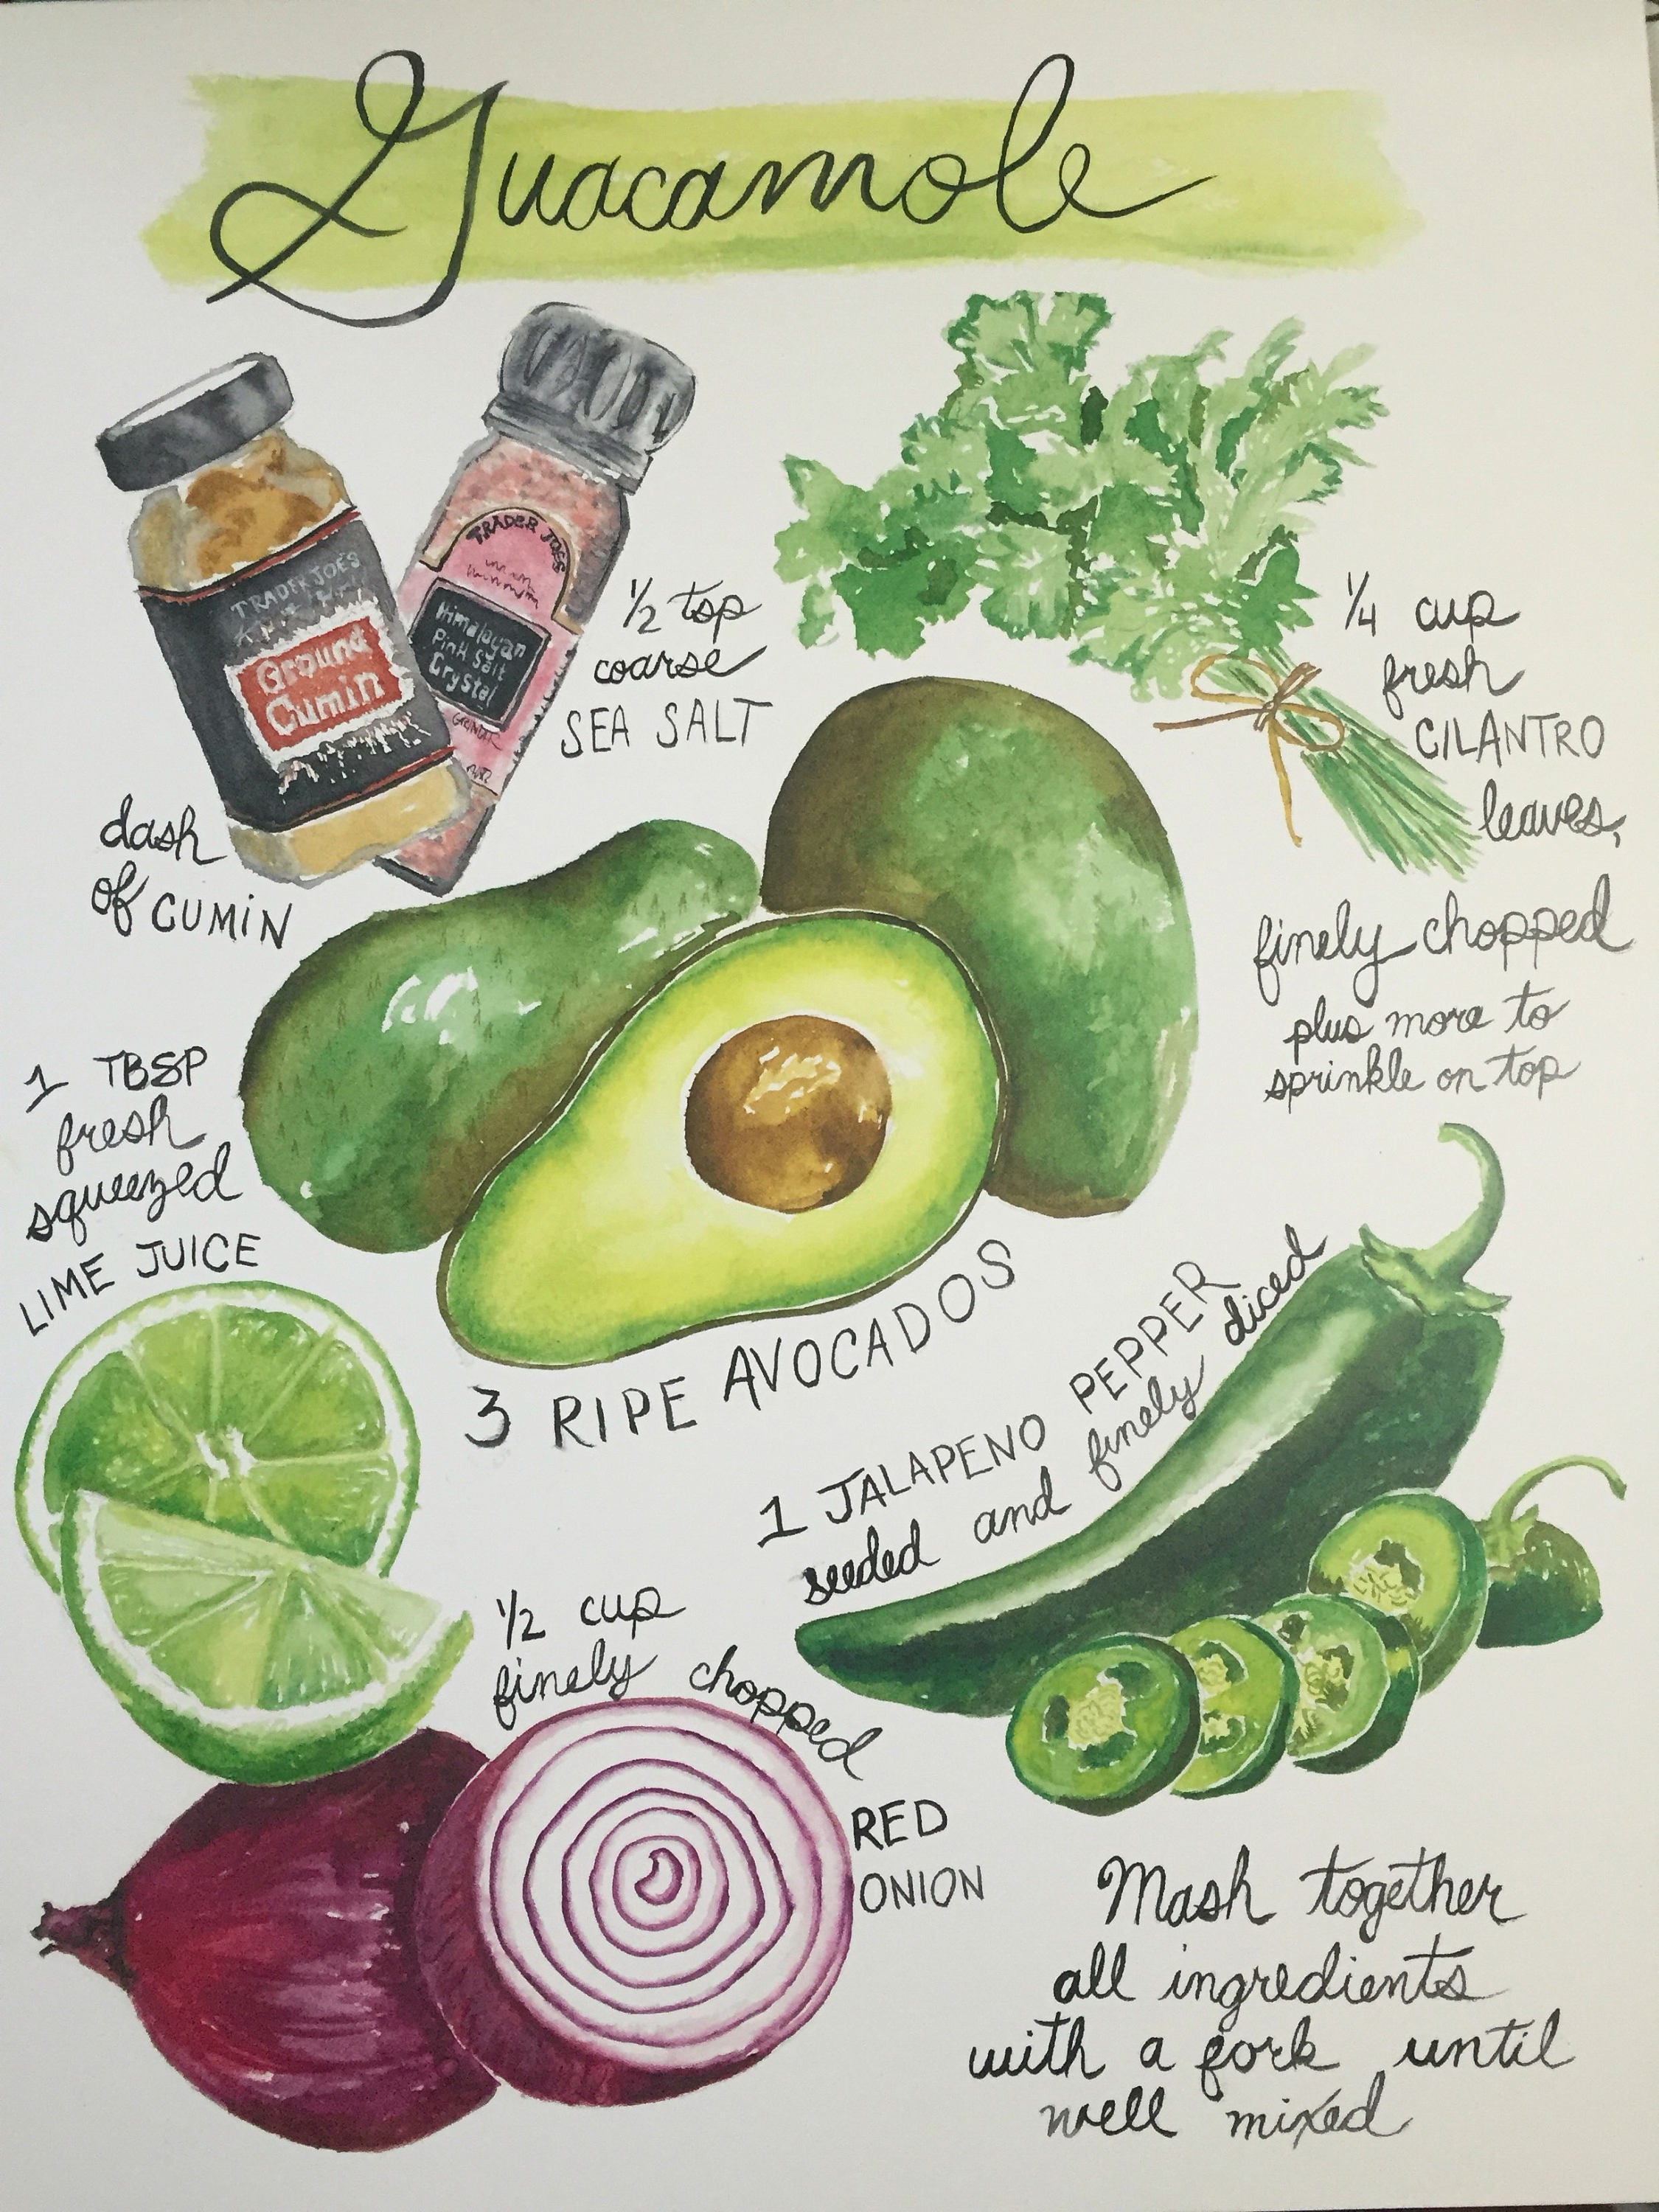 Guacamole
TRADER JOE'S
Ground
Cumin
TRADER JOE'S
Himalayan
Pink Salt
Crystal
GRINDER
1/2 tsp
coarse
SEA SALT
dash
of CUMIN
1/4 cup
fresh
CILANTRO
leaves,
finely chopped
plus more to
sprinkle on top
1 TBSP
fresh
squeezed
LIME JUICE
3 RIPE AVOCADOS
1 JALAPENO PEPPER
seeded and finely diced
1/2 cup
finely chopped
RED
ONION
Mash together
all ingredients
with a fork until
well mixed